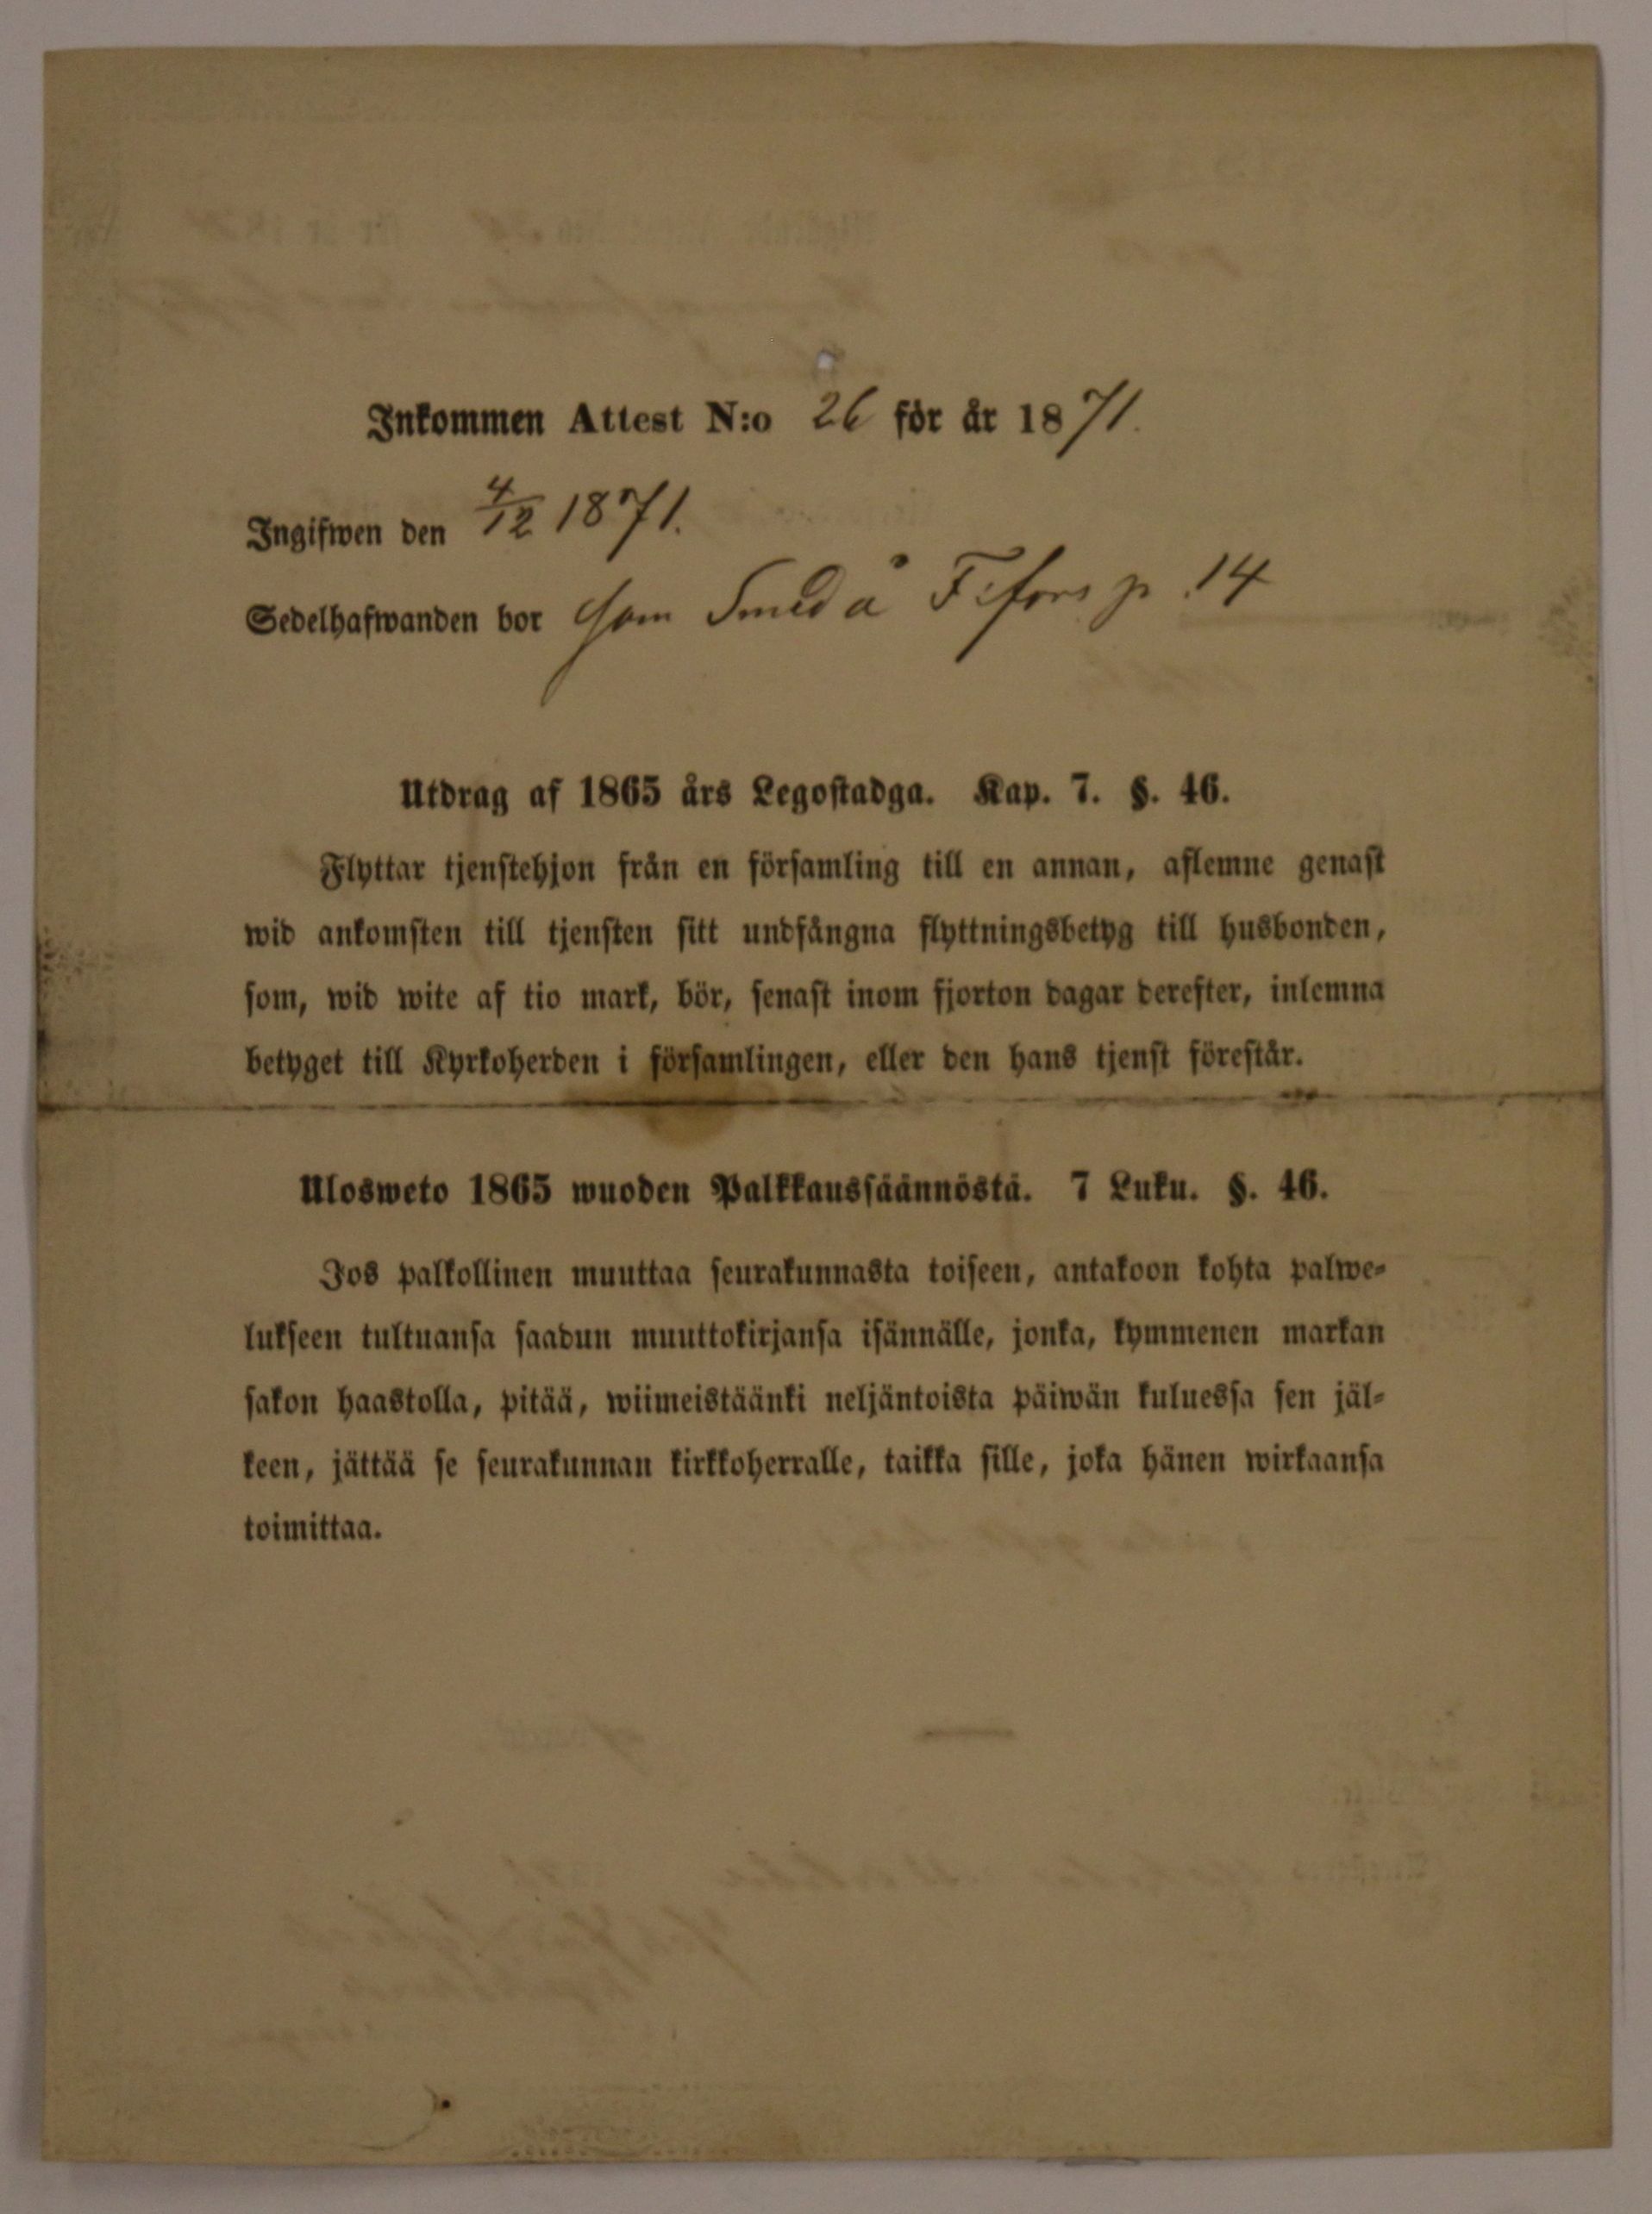 Inkommen Attest N:o 26 för år 1871.
Ingifwen den 4/12 1871.
Sedelhafwanden bor som Smed å Fifors p. 14
Utdrag af 1865 års Legostadga. Kap. 7. §. 46.
Flyttar tjenstehjon från en församling till en annan, aflemne genast
wid ankomsten till tjensten sitt undfångna flyttningsbetyg till husbonden,
som, wid wite af tio mark, bör, senast inom fjorton dagar derefter, inlemna
betyget till Kyrkoherden i församlingen, eller den hans tjenst förestår.
Ulosweto 1865 wuoden Palkkaussäännöstä. 7 Luku. §. 46.
Jos palkollinen muuttaa seurakunnasta toiseen, antakoon kohta palwe-
lukseen tultuansa saadun muuttokirjansa isännälle, jonka, kymmenen markan
sakon haastolla, pitää, wiimeistäänki neljäntoista päiwän kuluessa sen jäl-
keen, jättää se seurakunnan kirkkoherralle, taikka sille, joka hänen wirkaansa
toimittaa.